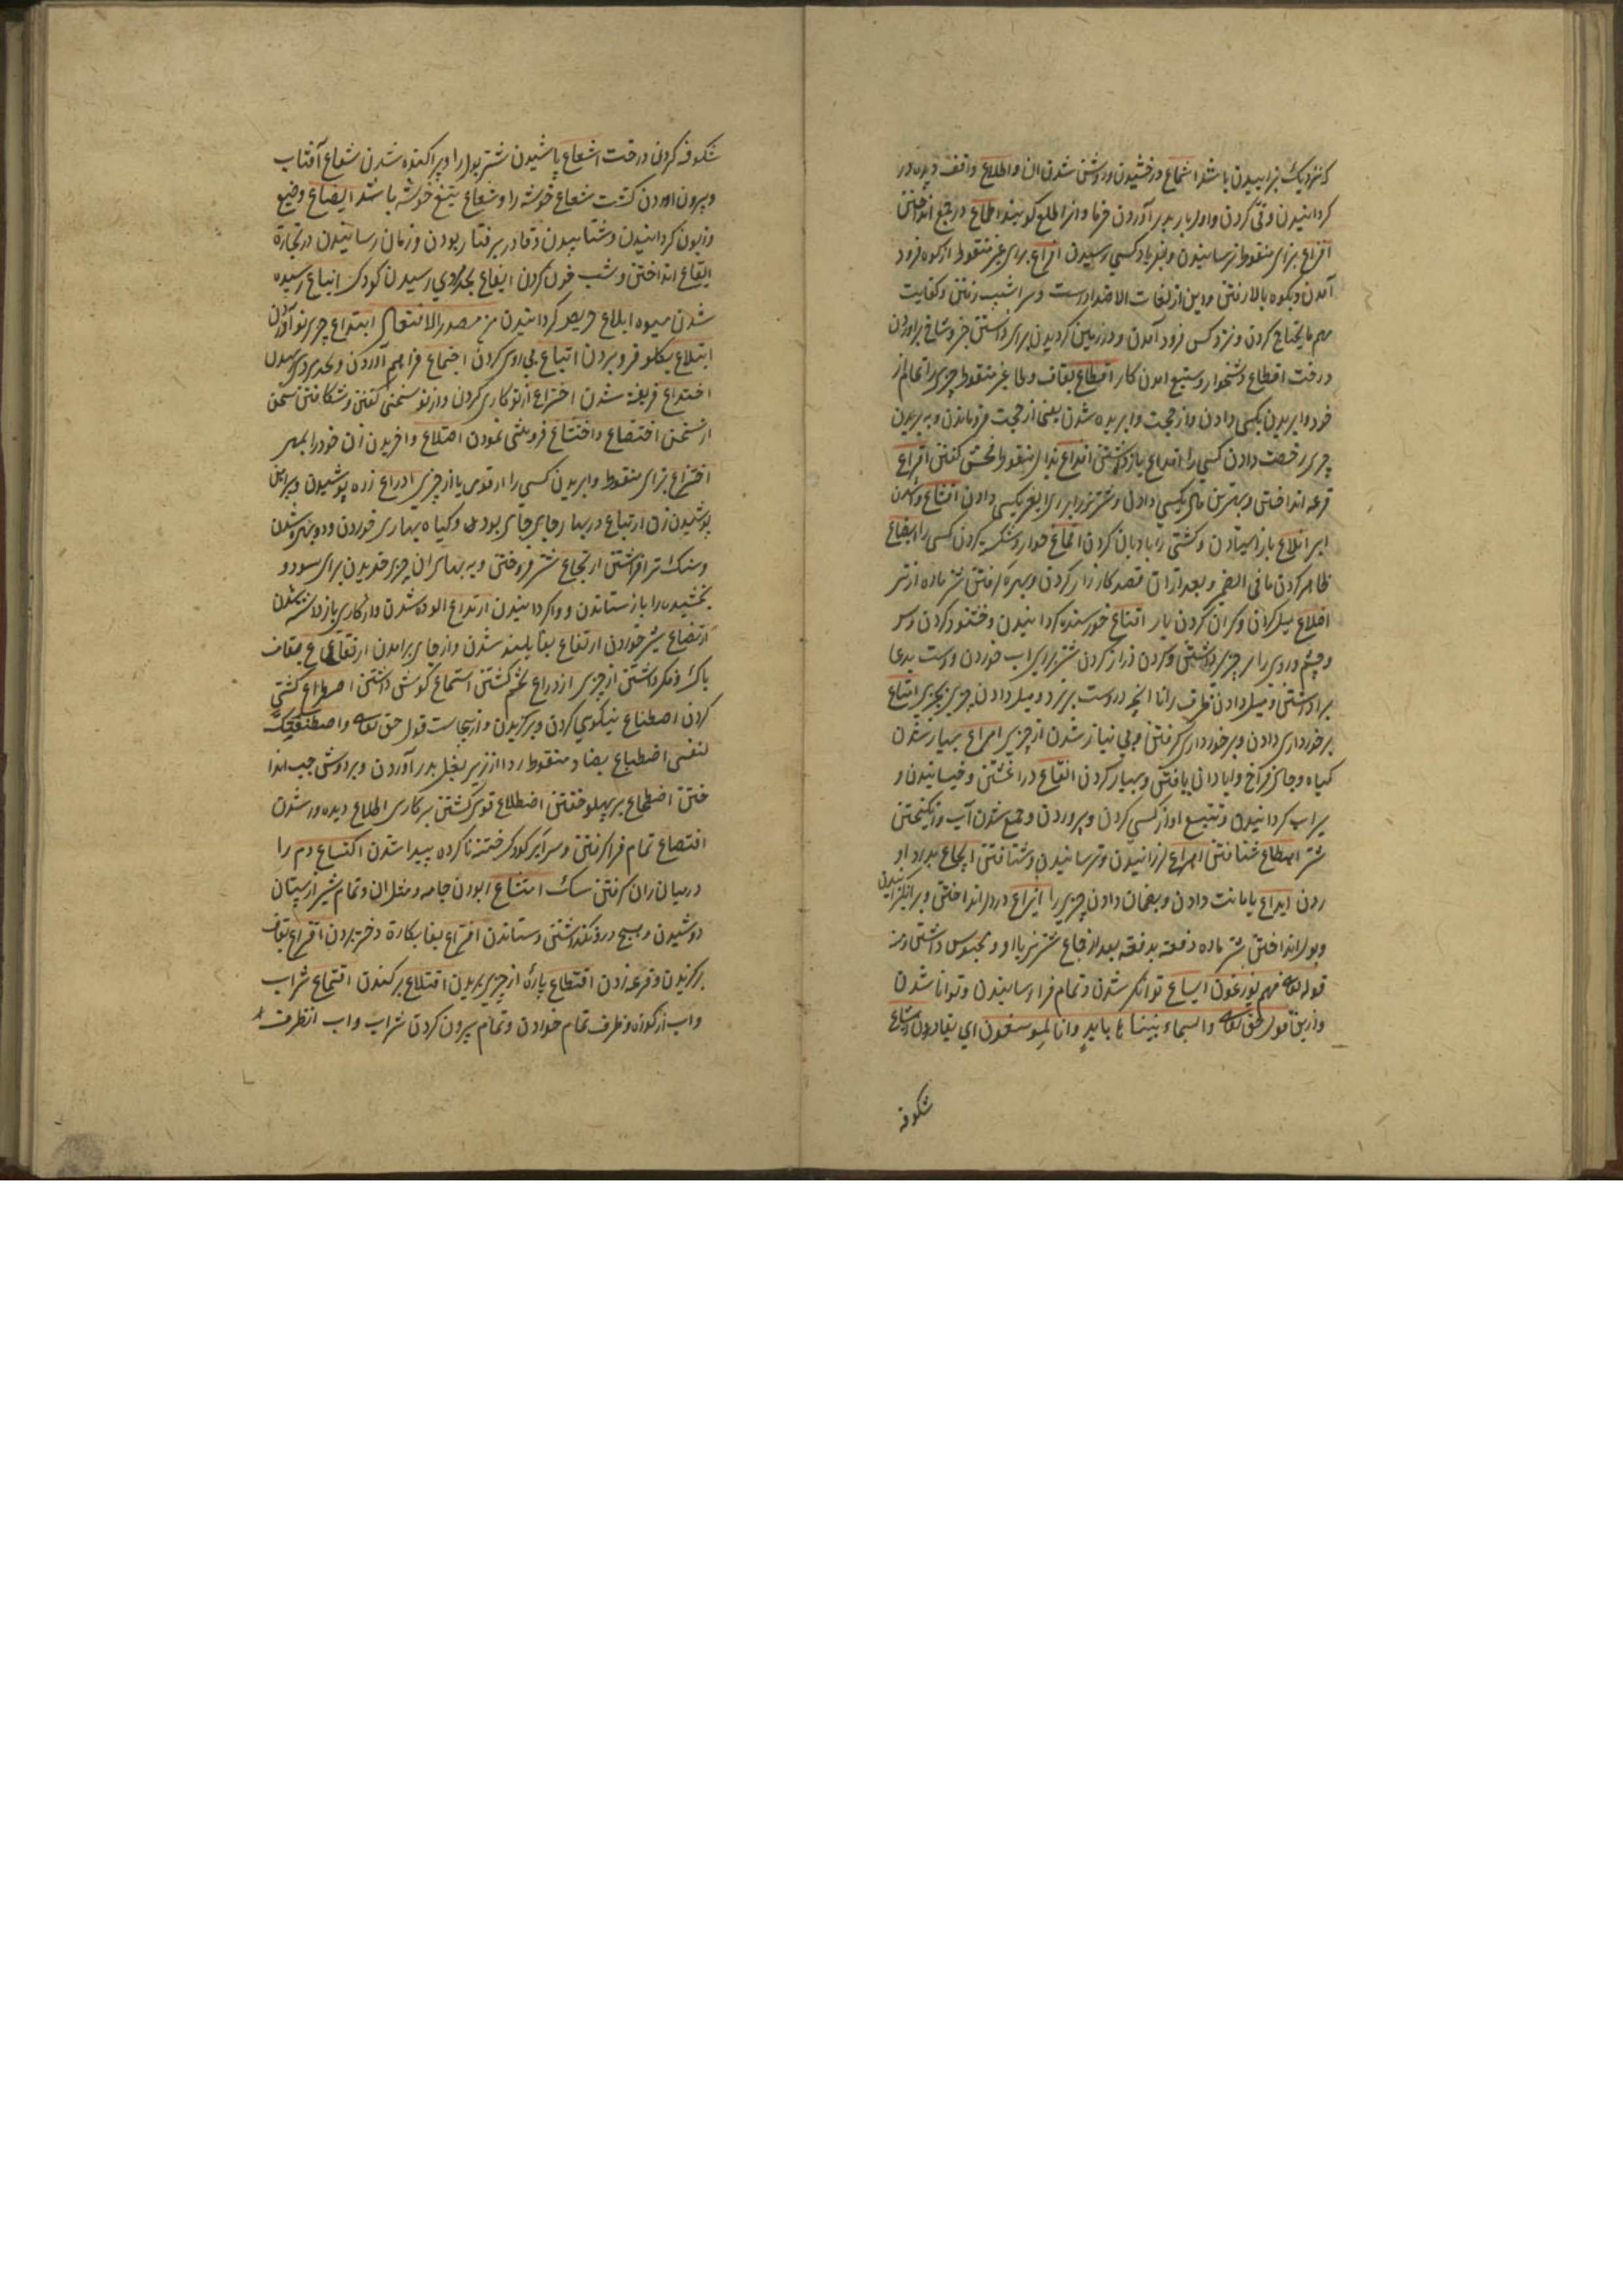 که نزدیک بزاییدن باشد اشعاع درخشیدن و روشن شدن ان و اطلاع واقف دیده ور
کردانیدن و قی کردن و اول بار بدر آوردن خرما و انرا طلع کویند اطماع در طمع انداختن
افزاع بزای منقوط ترسانیدن و بفریاد کسی رسیدن افراع برای غیر منقوط از کوه فرود
آمدن و بکوه بالا رفتن و این از لغات الاضداد است و سرا شیب رفتن و کفایت
مهم ما یحتاج کردن و نزد کس فرود آمدن و در زمین کردیدن برای دانستن خبر و شاخ براوردن
درخت افظاع دشخوار و شنیع امدن کار اقطاع بقاف و طا غیر منقوط چیزی را تمام از
خود وا بریدن بکسی دادن و از حجت وا بریده شدن یعنی از حجت فروماندن و به بریدن
چیزی رخصت دادن کسی را اقداع بازداشتن اقذاع بذال منقوط فحش کفتن اقراع
قرعه انداختن و بهترین مال بکسی دادن و شتر نر را برای بکسی دادن اقشاع وا شدن
ابر اقلاع باز ایستادن و کشتی را بادبان کردن اقماع خوار و شکسته کردن کسی را ایضاع
ظاهر کردن ما فی الضمیر و بعد ازان قصد کارزار کردن و بهره کرفتن شتر ماده از نر
اضلاع میل کردن و کران کردن بار اقناع خورسنده کردانیدن و خشنود کردن و سر
و چشم و روی را بر چیزی داشتن و کردن دراز کردن شتر برای اب خوردن و دست بدعا
برداشتن و میل دادن ظرف را تا انچه دروست بریزد و میل دادن چیزی بچیزی امتاع
برخورداری دادن و برخورداری کرفتن و بی نیاز شدن از چیزی امراع بسیار شدن
کیاه و جای فراخ و ابادان یافتن و بسیار کردن انقاع در اغشتن و خیسانیدن و
سیراب کردانیدن و تتبع اواز کسی کردن و پروردن و جمع شدن آب و برانکیختن
شتر اهطاع شتافتن اهراع لرزانیدن و ترسانیدن و شتافتن ایجاع بدرد او
ردن ایداع بامانت دادن و بضمان دادن چیزی را ایزاع در دل انداختن و برانکیزانیدن
و بول انداختن شتر ماده دفعه بدفعه بعد از جماع شتر نر با او و محبوس داشتن و منه
قوله تعالی فهم یوزعون ایساع توانکر شدن و تمام فرا رسانیدن و توانا شدن
و ازین قول حق تعالی والسماء بنیناها باید وانا لموسعون ای بقادرون اشاع
شکوفه
شکوفه کردن درخت اشعاع پاشیدن شتر بول را و پراکنده شدن شعاع آفتاب
و بیرون اوردن کشت شعاع خوشه را و شعاع تیغ خوشه باشد ایضاع وضیع
و زبون کردانیدن و شتابیدن و قادر برفتار بودن و زمان رسانیدن در تجارة
ایقاع انداختن و شب خون کردن ایفاع بحد مردی رسیدن کودک ایناع رسیده
شدن میوه ایلاع حریص کردانیدن من مصدر الافتعال ابتداع چیزی نو آوردن
ابتلاع بکلو فرو بردن اتباع پی روی کردن اجتماع فراهم آوردن و بحد مردی رسیدن
اختداع فریفته شدن اختراع از نو کاری کردن و از نو سخنی کفتن و شکافتن سخن
از سخن اختضاع و اختشاع فروتنی نمودن اختلاع وا خریدن زن خود را بمهر
اختزاع بزای منقوط وا بریدن کسی را از قومی یا از چیزی ادراع زره پوشیدن و پیراهن
پوشیدن زن ارتباع در بهار بجای جای بودن و کیاه بهاری خوردن و دو نیم شدن
و سنک برافراشتن ارتجاع شتر فروختن و به بهای ان چیزی خریدن برای سود و
بخشیده را باز ستاندن و واکردانیدن ارتداع الوده شدن و از کاری باز داشته شدن
ارتضاع شیر خوردن ارتفاع بفا بلند شدن و از جای برامدن ارتقاع بقاف
باک و فکر داشتن از چیزی ازدراع تخم کشتن استماع کوش داشتن اصطراع کشتی
کردن اصطناع نیکوی کردن و برکزیدن و ازینجاست قول حق تعالی واصطنعتک
لنفسی اضطباع بضاد منقوط ردا از زیر بغل بدر آوردن و بر دوش چپ اندا
ختن اضطجاع بر پهلو خفتن اضطلاع قوی کشتن بر کاری اطلاع دیده ور شدن
اقتصاع تمام فرا کرفتن و سر ایر کودک ختنه ناکرده پیدا شدن اکتساع دم را
در میان ران کرفتن سک امتشاع ربودن جامه و مثل ان و تمام شیر از پستان
دوشیدن و هیچ درو نکذاشتن و ستاندن افتراع بفا بکارة دختر بردن اقتراع بقاف
برکزیدن و قرعه زدن اقتطاع پارهٔ از چیزی بریدن اقتلاع برکندن اقتماع شراب
و اب از کوزه و ظرف تمام خوردن و تمام بیرون کردن شراب و اب از ظرف